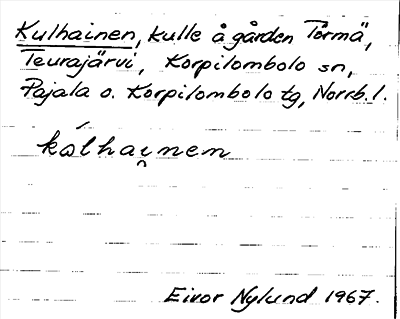 Kulhainen, kulle å gården Törmä,
Teurajärvi, Korpilombolo sn,
Pajala o. Korpilombolo tg, Norrb. l.
kólhai̯nen
Eivor Nylund 1967.